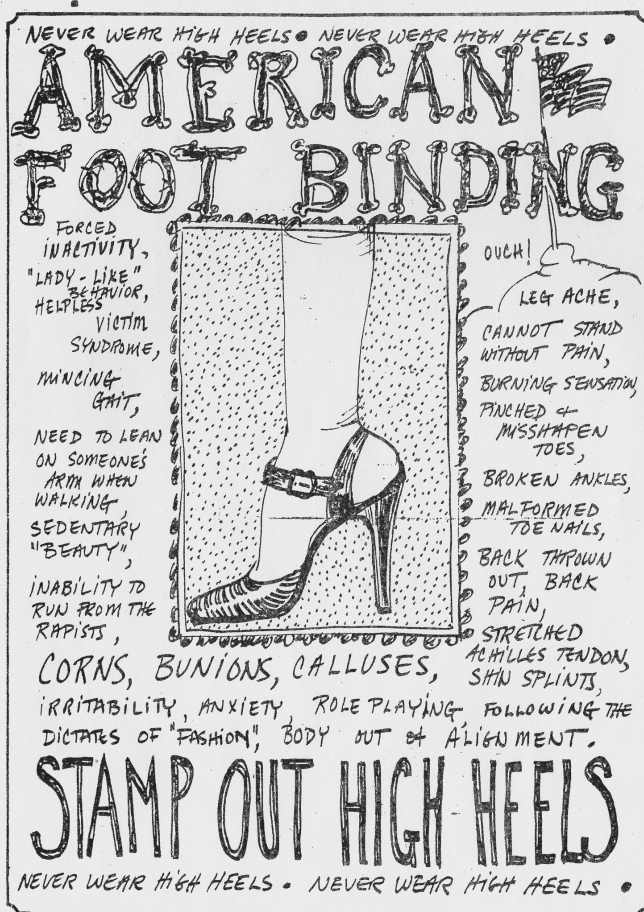 NEVER WEAR HIGH HEELS • NEVER WEAR HIGH HEELS •
AMERICAN
FOOT BINDING
FORCED
INACTIVITY,
"LADY-LIKE"
BEHAVIOR,
HELPLESS
VICTIM
SYNDROME,
MINCING
GAIT,
NEED TO LEAN
ON SOMEONE'S
ARM WHEN
WALKING,
SEDENTARY
"BEAUTY",
INABILITY TO
RUN FROM THE
RAPISTS,
OUCH!
LEG ACHE,
CANNOT STAND
WITHOUT PAIN,
BURNING SENSATION,
PINCHED &
MISSHAPEN
TOES,
BROKEN ANKLES,
MALFORMED
TOE NAILS,
BACK THROWN
OUT, BACK
PAIN,
STRETCHED
ACHILLES TENDON,
SHIN SPLINTS,
CORNS, BUNIONS, CALLUSES,
IRRITABILITY, ANXIETY, ROLE PLAYING, FOLLOWING THE
DICTATES OF "FASHION", BODY OUT OF ALIGNMENT.
STAMP OUT HIGH HEELS
NEVER WEAR HIGH HEELS • NEVER WEAR HIGH HEELS •